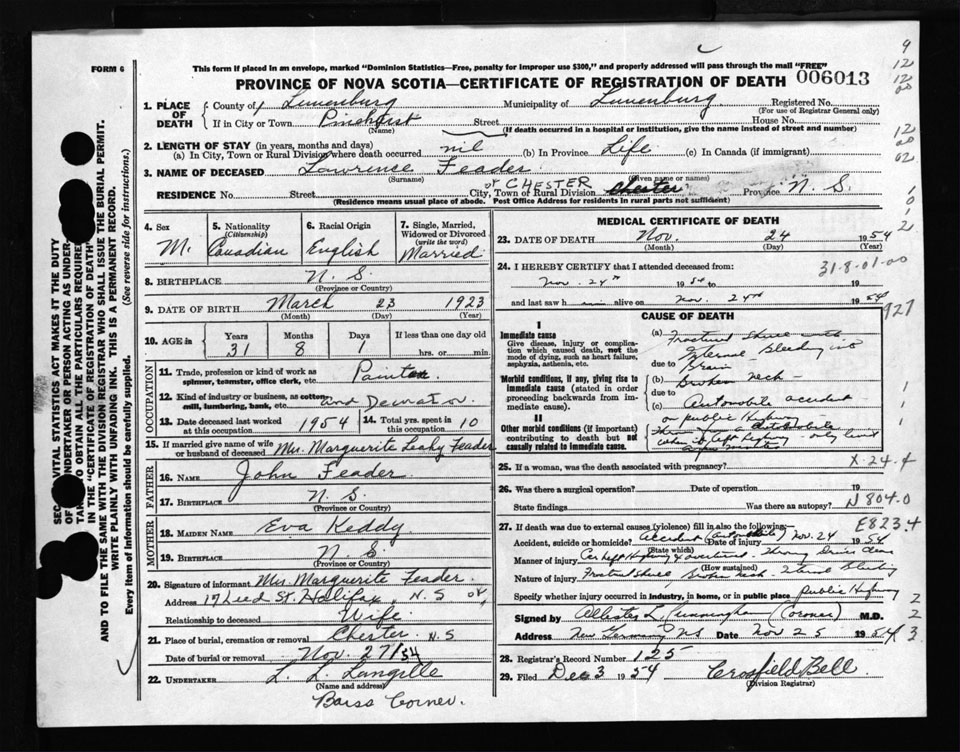 FORM 6
This form if placed in an envelope, marked "Dominion Statistics—Free, penalty for improper use $300," and properly addressed will pass through the mail "FREE"
PROVINCE OF NOVA SCOTIA—CERTIFICATE OF REGISTRATION OF DEATH 006013
1. PLACE OF DEATH
County of Lunenburg Municipality of Lunenburg Registered No.
(For use of Registrar General only)
If in City or Town Pinehurst Street House No.
(Name) (If death occurred in a hospital or institution, give the name instead of street and number)
2. LENGTH OF STAY (in years, months and days)
(a) In City, Town or Rural Division where death occurred nil (b) In Province Life (c) In Canada (if immigrant)
3. NAME OF DECEASED Lawrence Feader
(Surname) (Given name or names)
or CHESTER
RESIDENCE No. Street City, Town or Rural Division Chester Province N. S.
(Residence means usual place of abode. Post Office Address for residents in rural parts not sufficient)
4. Sex M.
5. Nationality (Citizenship) Canadian
6. Racial Origin English
7. Single, Married, Widowed or Divorced (write the word) Married
8. BIRTHPLACE N. S.
(Province or Country)
9. DATE OF BIRTH March 23 1923
(Month) (Day) (Year)
10. AGE in Years Months Days If less than one day old
31 8 1 hrs. or min.
OCCUPATION
11. Trade, profession or kind of work as spinner, teamster, office clerk, etc. Painter
12. Kind of industry or business, as cotton mill, lumbering, bank, etc. and Decorator.
13. Date deceased last worked at this occupation 1954
14. Total yrs. spent in this occupation 10
15. If married give name of wife or husband of deceased Mrs. Marguerite Leahy Feader
FATHER
16. NAME John Feader
17. BIRTHPLACE N. S.
(Province or Country)
MOTHER
18. MAIDEN NAME Eva Keddy
19. BIRTHPLACE N. S.
(Province or Country)
20. Signature of informant Mrs. Marguerite Feader.
Address 17 Leed St. Halifax, N. S
Relationship to deceased Wife
21. Place of burial, cremation or removal Chester N. S
Date of burial or removal Nov. 27/54
22. UNDERTAKER L. L. Langille
(Name and address)
Barss Corner.
MEDICAL CERTIFICATE OF DEATH
23. DATE OF DEATH Nov. 24 1954
(Month) (Day) (Year)
24. I HEREBY CERTIFY that I attended deceased from:
31-8-01-00
Nov. 24th 19 to 19
and last saw h alive on Nov. 24th 1954
927
CAUSE OF DEATH
I
Immediate cause
Give disease, injury or complication which caused death, not the mode of dying, such as heart failure, asphyxia, asthenia, etc.
Morbid conditions, if any, giving rise to immediate cause (stated in order proceeding backwards from immediate cause).
II
Other morbid conditions (if important) contributing to death but not causally related to immediate cause.
(a) Fractured Skull with
Internal Bleeding into
due to Brain
(b) Broken neck
due to
(c) Automobile accident
on public Highway
automobile
when it left highway - only
25. If a woman, was the death associated with pregnancy? X-24.4
26. Was there a surgical operation? Date of operation 19
State findings Was there an autopsy? N 804.0
27. If death was due to external causes (violence) fill in also the following: E823.4
Accident, suicide or homicide? Accident (automobile) Date of injury Nov. 24 1954
(State which)
Manner of injury Car left Highway & overturned. Throwing Driver Clear
(How sustained)
Nature of injury Fractured Skull Broken neck - Internal Bleeding
Specify whether injury occurred in industry, in home, or in public place public Highway
Signed by L Cunningham (Coroner) M.D.
Address New Germany NS Date Nov 25 1954
28. Registrar's Record Number 125
29. Filed Dec 3 1954 Crossfield Bell
(Division Registrar)
VITAL STATISTICS ACT MAKES IT THE DUTY
UNDERTAKER OR PERSON ACTING AS UNDER-
TO OBTAIN ALL THE PARTICULARS REQUIRED
IN THE "CERTIFICATE OF REGISTRATION OF DEATH"
AND TO FILE THE SAME WITH THE DIVISION REGISTRAR WHO SHALL ISSUE THE BURIAL PERMIT.
WRITE PLAINLY WITH UNFADING INK. THIS IS A PERMANENT RECORD.
Every item of information should be carefully supplied. (See reverse side for instructions.)